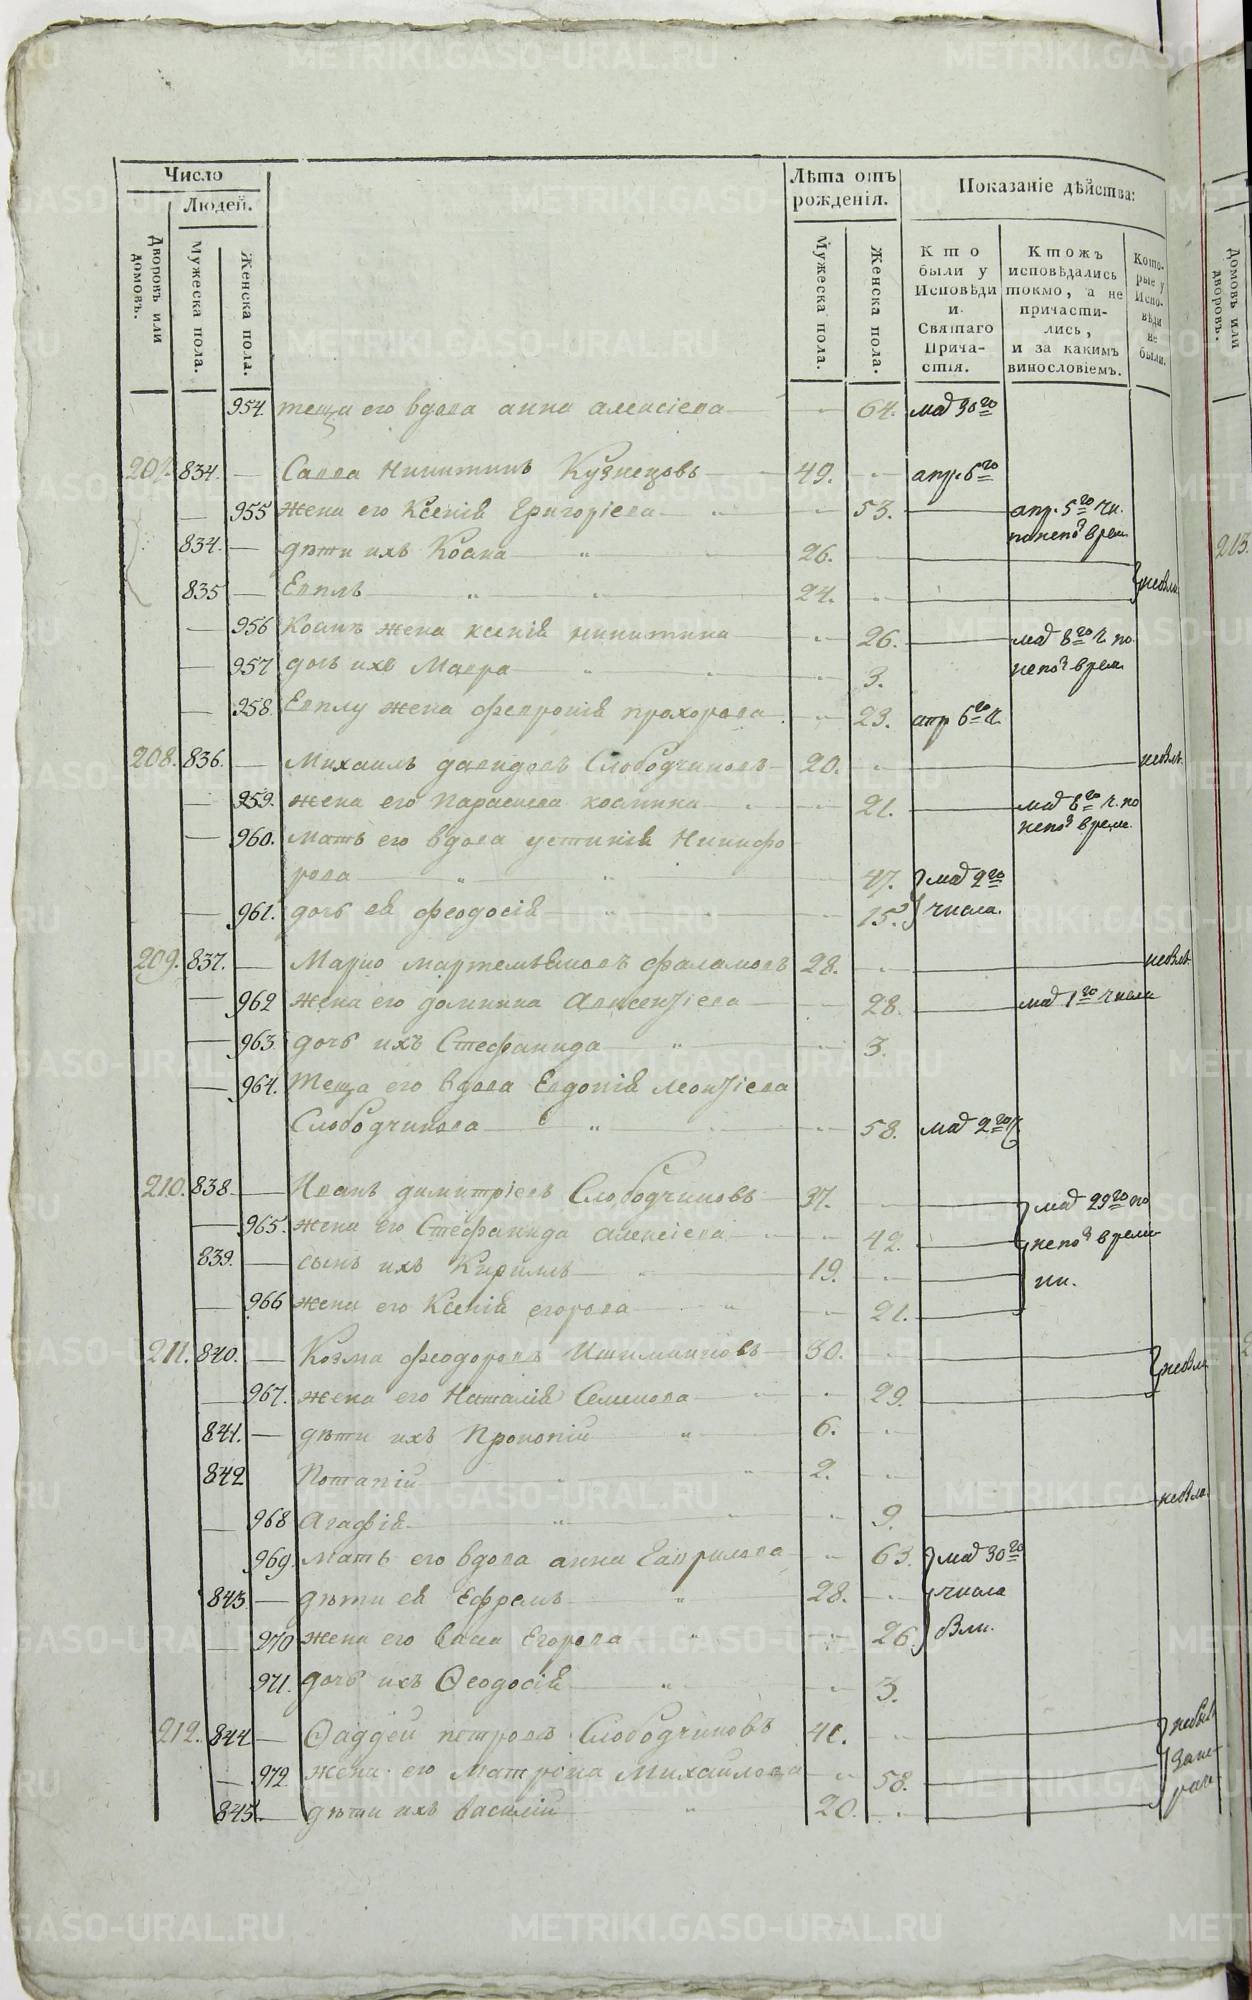 Число
Людей.
Дворовъ или домовъ.
Мужеска пола.
Женска пола.
Лѣта отъ рожденія.
Мужеска пола.
Женска пола.
Показаніе дѣйства:
Кто были у Исповѣди и Святаго Причастія.
Ктожъ исповѣдались токмо, а не причастились, и за какимъ винословіемъ.
Которые у Исповѣди не были.
Домовъ или дворовъ.
954. теща его вдова анна алексіева 64. маія 30го
207. 834. Савва Никитинъ Кузнецовъ 49. апр. 6го
955 жена его Ксенія Григоріева 53. апр. 5го чи. по непо врем.
834. дѣти ихъ Козма 26.
835 Евплъ 24. небыли
956 Козмы жена ксенія никитина 26. маія 8го ч. по непо врем.
957 дочь ихъ Мавра 3.
958. Евплу жена феврониія прохорова 23. апр 6го ч.
213.
208. 836. Михаилъ давидовъ Слободчиковъ 20. небылъ.
959. жена его Параскева козмина 21. маія 8го ч. по непо време.
960. мать его вдова устинія Никифо
рова 47. маія 9го
961. дочь ея феодосія 15. числа.
209. 837. 28. небылъ.
962 жена его домника Авксентіева 28. маія 1го числа
963. дочь ихъ Стефанида 3.
964. теща его вдова Евдокія леонтіева
Слободчикова 58. маія 2го ч.
210. 838. Иванъ димитріевъ Слободчиковъ 37. маія 29го по
965. жена его Стефанида алексіева 42. непо време
839. сынъ ихъ Кириллъ 19. ни.
966 жена его Ксенія егорова 21.
211. 840. Козма феодоровъ 30. небыли
967. жена его Наталія Семенова 29.
841. дѣти ихъ Прокопій 6.
842 Потапій 2.
968 Агафія 9. небыла.
969. мать его вдова анна Гаврилова 63. маія 30го
843. дѣти ея Ефремъ 28. числа
970 жена его васса Егорова 26. были.
971. дочь ихъ Ѳеодосія 3.
212. 844 Ѳаддей петровъ Слободчиковъ 41. небыли
972 жена его Матрона Михайлова 58.
845. дѣти ихъ василій 20.
METRIKI.GASO-URAL.RU